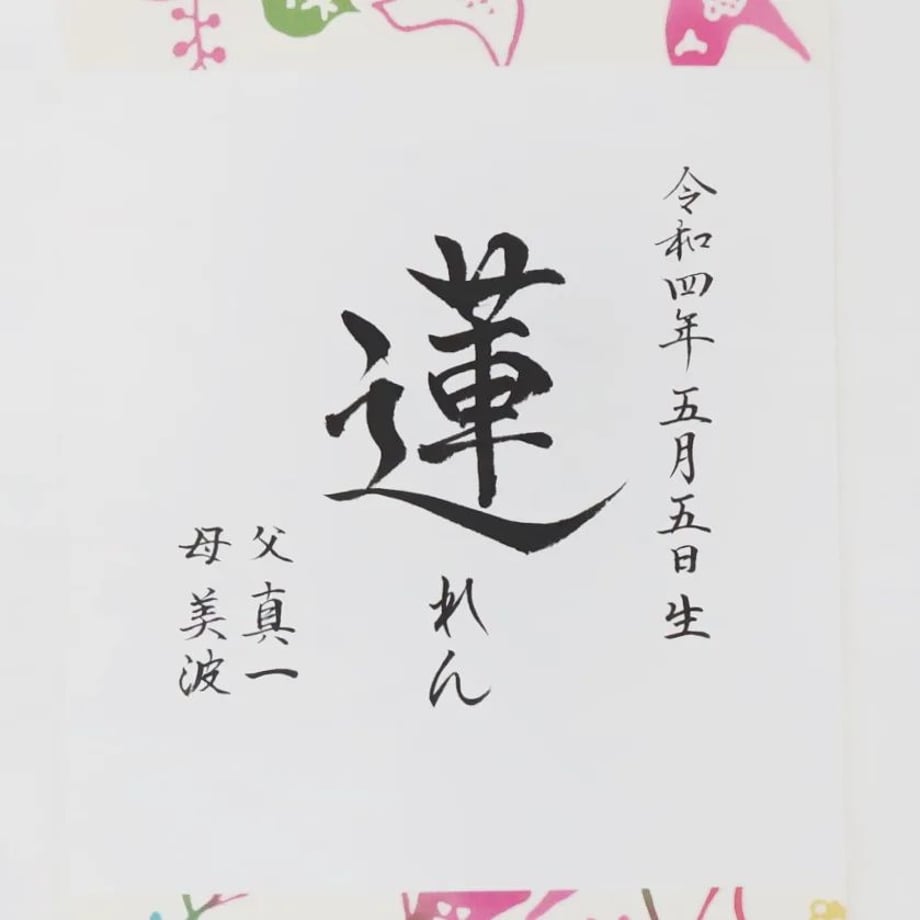 令和四年 五月五日生
蓮
れん
父 真一
母 美波